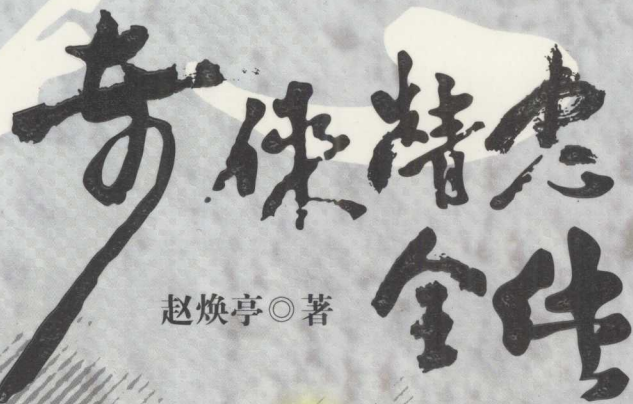 奇侠精忠
全传
赵焕亭◎著